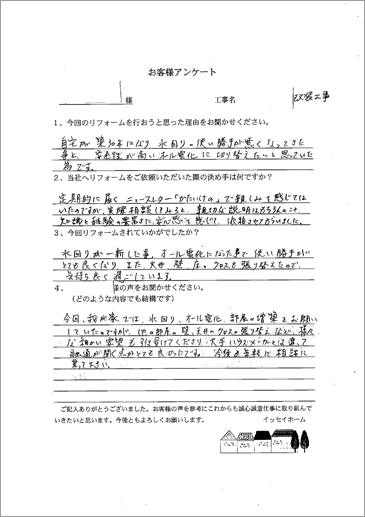 お客様アンケート
様 工事名 改装工事
1、今回のリフォームを行おうと思った理由をお聞かせください。
自宅が築30年になり水回りの使い勝手が悪くなってきた
事と、安全性が高いオール電化に切り替えたいと思っていた
為です。
2、当社へリフォームをご依頼いただいた際の決め手は何ですか?
定期的に届くニュースレター「かたいけの」で親しみを感じては
いたのですが、実際相談してみると、親切な説明はもちろんのこと、
知識と経験の豊富さに安心感を感じて、依頼させてもらいました。
3、今回リフォームされていかがでしたか?
水回りが一新した事、オール電化になった事で使い勝手が
とても良くなり、また、天井、壁、床のクロスも張り替えたので、
気持ち良く過ごしています。
4、 様の声をお聞かせください。
(どのような内容でも結構です)
今回、我が家では、水回り、オール電化、部屋の増築をお願い
していたのですが、他の部屋の壁、天井のクロスの張り替えなど、様々
な細かい要望も引き受けてくださり、大手ハウスメーカーとは違って
融通が聞く点がとても良かったです。今後も気軽に相談に
乗って下さい。
ご記入ありがとうございました。お客様の声を参考にこれからも誠心誠意仕事に取り組んで
いきたいと思います。今後ともよろしくお願いします。 イッセイホーム